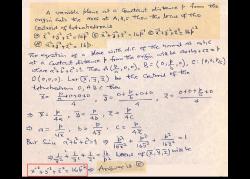 A variable plane at a constant distance p from the
origin cuts the axes at A, B, C then the locus of the
centroid of tetrahedron is
The equation of a plane with d.c. of the normal as a, b, c
at a constant distance p from the origin will be ax+by+cz=p
where a²+b²+c²=1. A(p/a, 0, 0), B=(0, p/b, 0), C:(0, 0, p/c)
O(0,0,0). Let (x̄, ȳ, z̄) be the centroid of the
tetrahedron O, A, B, C then
x̄ = (p/a+0+0+0)/4, ȳ = (0+p/b+0+0)/4, z̄ =
⇒ x̄ = p/4a, ȳ = p/4b, z̄ = p/4c
⇒ a = p/4x̄, b = p/4ȳ, c = p/4z̄
But since a²+b²+c²=1 ⇒ p²/16x̄² + p²/16ȳ² + p²/16z̄² = 1
⇒ 1/x̄² + 1/ȳ² + 1/z̄² = 16/p² Locus of (x̄, ȳ, z̄) will be
x⁻²+y⁻²+z⁻²=16p⁻² ⇒ Answer is